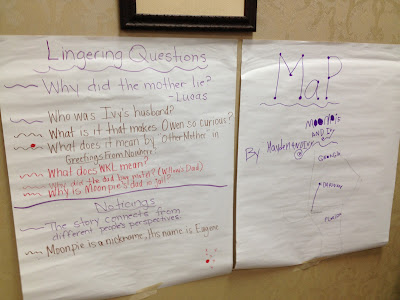 Lingering Questions
Why did the mother lie?
-Lucas
Who was Ivy's husband?
What is it that makes Owen so curious?
What does it mean by Other Mother in
Greetings From Nowhere
What does WKL mean?
Why did the dad buy motin? (Willow's Dad)
Why is Moonpie's dad in jail?
Noticings
The story connects from
different people's perspectives
Moonpie is a nickname, His name is Eugene
MaP
MOONPIE
AND IVY
By Hayden